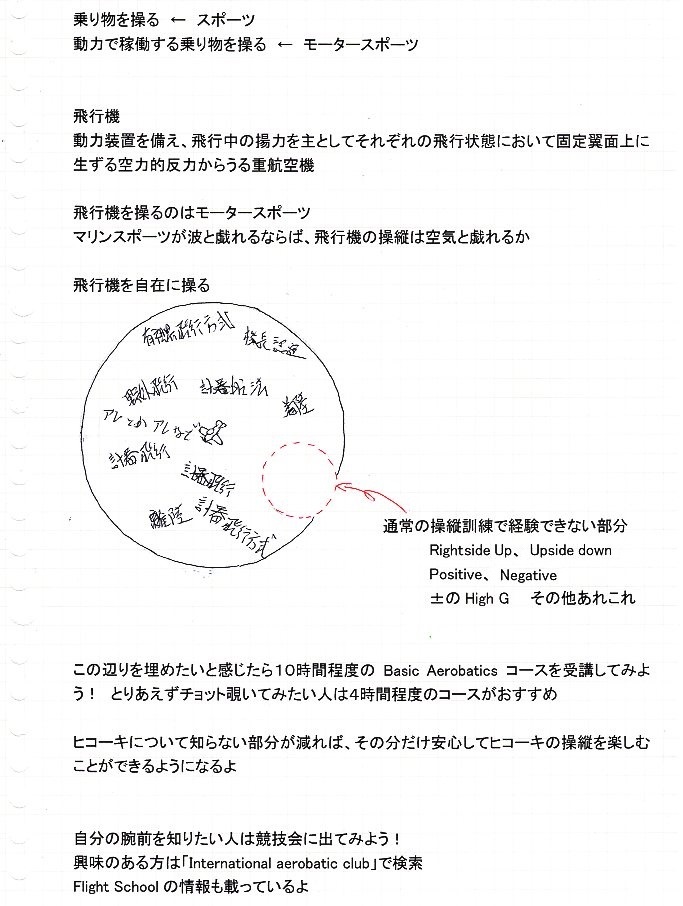 乗り物を操る ← スポーツ
動力で稼働する乗り物を操る ← モータースポーツ
飛行機
動力装置を備え、飛行中の揚力を主としてそれぞれの飛行状態において固定翼面上に
生ずる空力的反力からうる重航空機
飛行機を操るのはモータースポーツ
マリンスポーツが波と戯れるならば、飛行機の操縦は空気と戯れるか
飛行機を自在に操る
有視界飛行方式
機長認定
野外飛行
計器出法
着陸
アレとか アレなど
計器飛行
計器飛行
離陸
計器飛行方式
通常の操縦訓練で経験できない部分
Rightside Up、 Upside down
Positive、 Negative
±のHigh G その他あれこれ
この辺りを埋めたいと感じたら10時間程度の Basic Aerobatics コースを受講してみよ
う! とりあえずチョット覗いてみたい人は4時間程度のコースがおすすめ
ヒコーキについて知らない部分が減れば、その分だけ安心してヒコーキの操縦を楽しむ
ことができるようになるよ
自分の腕前を知りたい人は競技会に出てみよう!
興味のある方は「International aerobatic club」で検索
Flight Schoolの情報も載っているよ